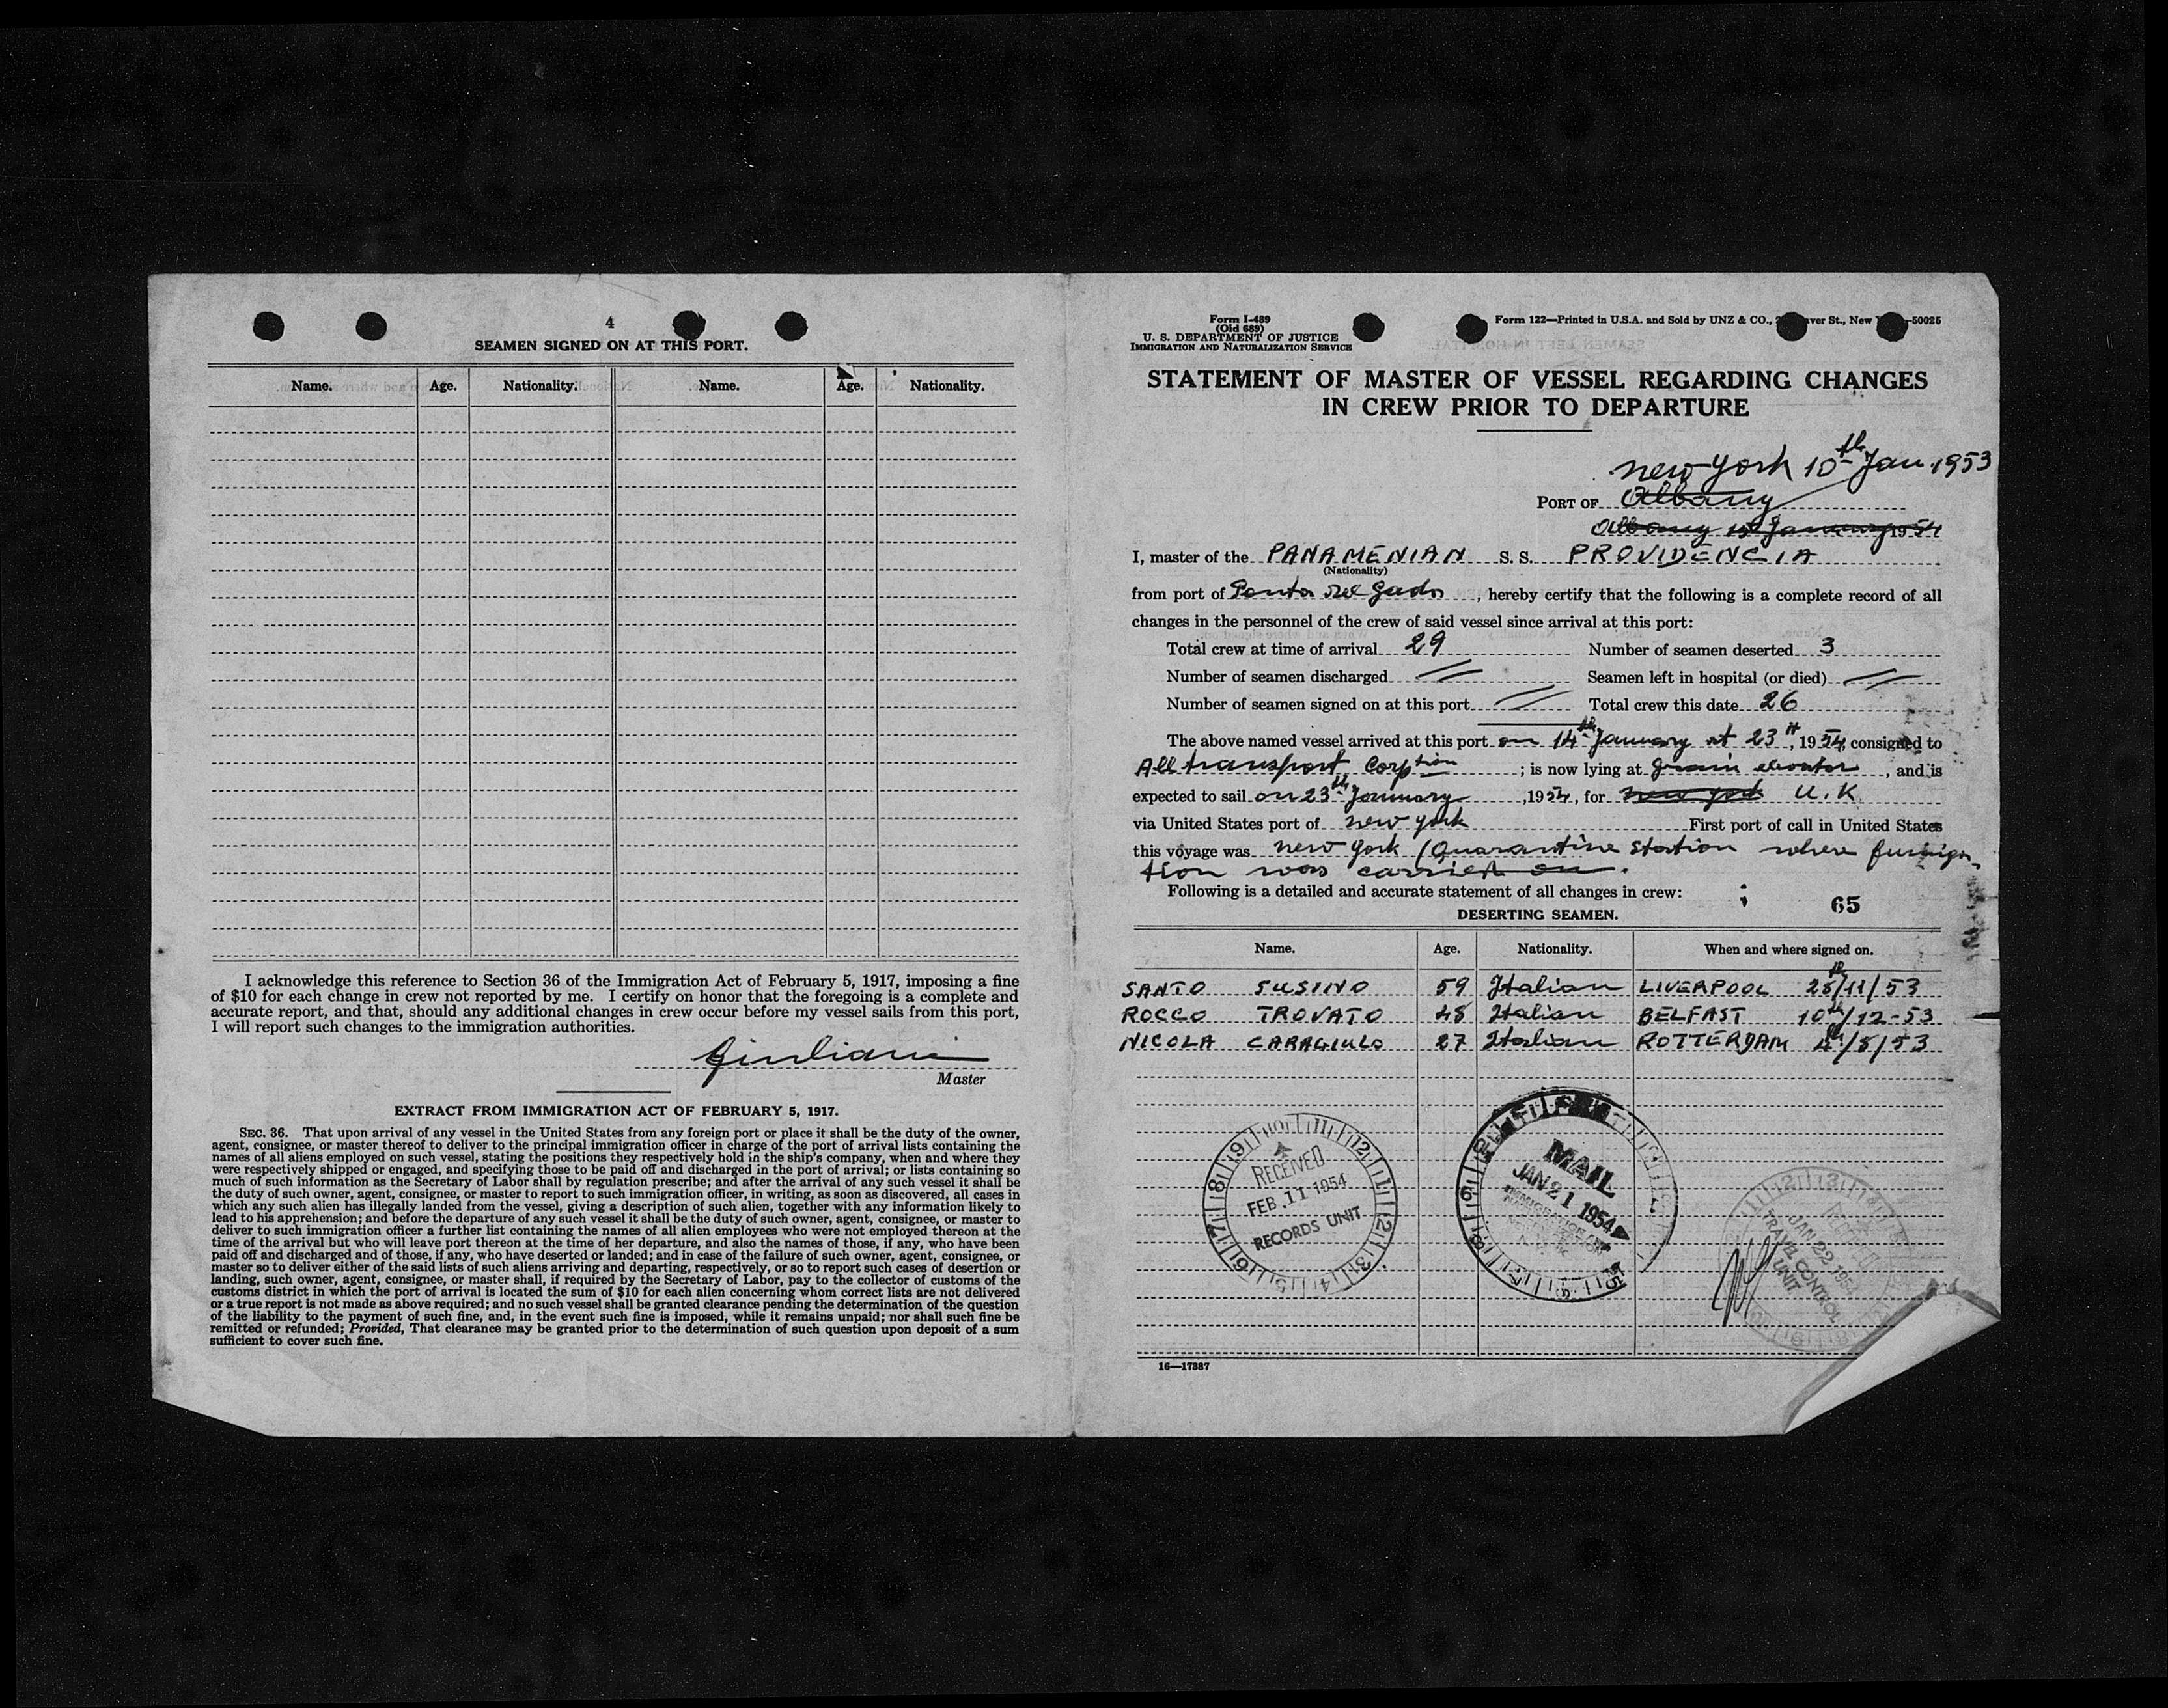 4
SEAMEN SIGNED ON AT THIS PORT.
Name. Age. Nationality. Name. Age. Nationality.
I acknowledge this reference to Section 36 of the Immigration Act of February 5, 1917, imposing a fine
of $10 for each change in crew not reported by me. I certify on honor that the foregoing is a complete and
accurate report, and that, should any additional changes in crew occur before my vessel sails from this port,
I will report such changes to the immigration authorities.
Giuliani
Master
EXTRACT FROM IMMIGRATION ACT OF FEBRUARY 5, 1917.
SEC. 36. That upon arrival of any vessel in the United States from any foreign port or place it shall be the duty of the owner,
agent, consignee, or master thereof to deliver to the principal immigration officer in charge of the port of arrival lists containing the
names of all aliens employed on such vessel, stating the positions they respectively hold in the ship's company, when and where they
were respectively shipped or engaged, and specifying those to be paid off and discharged in the port of arrival; or lists containing so
much of such information as the Secretary of Labor shall by regulation prescribe; and after the arrival of any such vessel it shall be
the duty of such owner, agent, consignee, or master to report to such immigration officer, in writing, as soon as discovered, all cases in
which any such alien has illegally landed from the vessel, giving a description of such alien, together with any information likely to
lead to his apprehension; and before the departure of any such vessel it shall be the duty of such owner, agent, consignee, or master to
deliver to such immigration officer a further list containing the names of all alien employees who were not employed thereon at the
time of the arrival but who will leave port thereon at the time of her departure, and also the names of those, if any, who have been
paid off and discharged and of those, if any, who have deserted or landed; and in case of the failure of such owner, agent, consignee, or
master so to deliver either of the said lists of such aliens arriving and departing, respectively, or so to report such cases of desertion or
landing, such owner, agent, consignee, or master shall, if required by the Secretary of Labor, pay to the collector of customs of the
customs district in which the port of arrival is located the sum of $10 for each alien concerning whom correct lists are not delivered
or a true report is not made as above required; and no such vessel shall be granted clearance pending the determination of the question
of the liability to the payment of such fine, and, in the event such fine is imposed, while it remains unpaid; nor shall such fine be
remitted or refunded; Provided, That clearance may be granted prior to the determination of such question upon deposit of a sum
sufficient to cover such fine.
Form I-489
(Old 689)
U. S. DEPARTMENT OF JUSTICE
IMMIGRATION AND NATURALIZATION SERVICE
Form 122—Printed in U.S.A. and Sold by UNZ & CO., St., New 50025
STATEMENT OF MASTER OF VESSEL REGARDING CHANGES
IN CREW PRIOR TO DEPARTURE
New York 10th Jan. 1953
PORT OF Albany
Albany January 1954
I, master of the PANAMENIAN S. S. PROVIDENCIA
(Nationality)
from port of Ponta Del Gada, hereby certify that the following is a complete record of all
changes in the personnel of the crew of said vessel since arrival at this port:
Total crew at time of arrival 29 Number of seamen deserted 3
Number of seamen discharged // Seamen left in hospital (or died) //
Number of seamen signed on at this port // Total crew this date 26
The above named vessel arrived at this port on 14th January at 23H, 1954, consigned to
All transport Corption; is now lying at grain elevator, and is
expected to sail on 23th January, 1954, for New York U.K
via United States port of New York First port of call in United States
this voyage was New York (Quarantine Station where fumiga-
tion was carried on.
Following is a detailed and accurate statement of all changes in crew:
65
DESERTING SEAMEN.
Name. Age. Nationality. When and where signed on.
SANTO SUSINO 59 Italian LIVERPOOL 28th/11/53
ROCCO TROVATO 48 Italian BELFAST 10th/12-53
NICOLA CARAGIULO 27 Italian ROTTERDAM 4th/8/53
RECEIVED
FEB. 11 1954
RECORDS UNIT
MAIL
JAN 21 1954
IMMIGRATION AND
JAN 22 1954
TRAVEL CONTROL
UNIT
16—17387